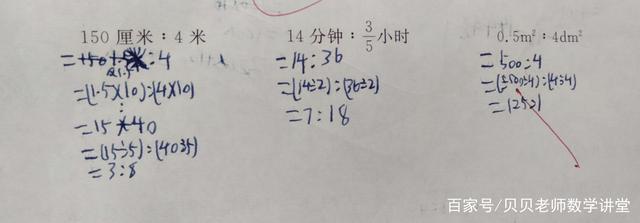 150 厘米：4 米
=1.5:4
=(1.5×10):(4×10)
=15:40
=(15÷5):(40÷5)
=3:8
14 分钟：3/5小时
=14:36
=(14÷2):(36÷2)
=7:18
0.5m²：4dm²
=500:4
=(500÷4):(4÷4)
=125:1
百家号/贝贝老师数学讲堂